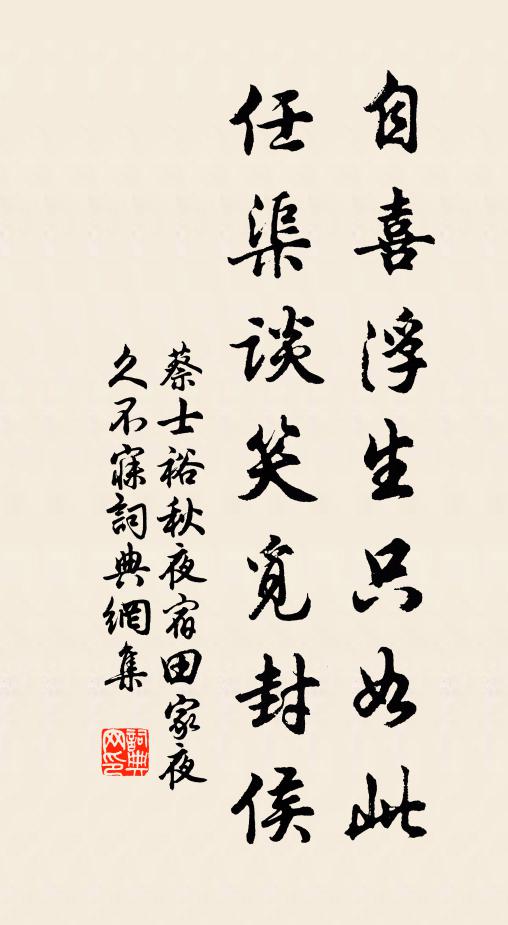 自喜浮生只如此
任渠談笑覓封侯
蔡士裕秋夜宿田家夜
久不寐詞典網集
詞典
网印